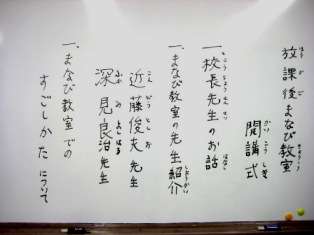 放課後まなび教室
開講式
一、校長先生のお話
一、まなび教室の先生紹介
近藤俊夫先生
深見良治先生
一、まなび教室での
すごしかたについて